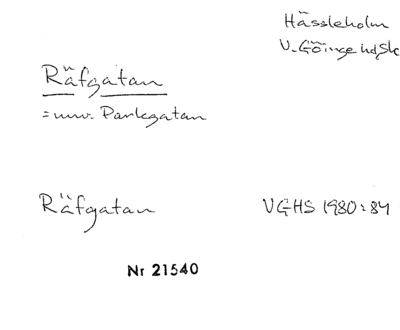 Hässleholm
V. Göinge hd, Sk
Räfgatan
= nuv. Parkgatan
Räfgatan VGHS 1980:84
Nr 21540